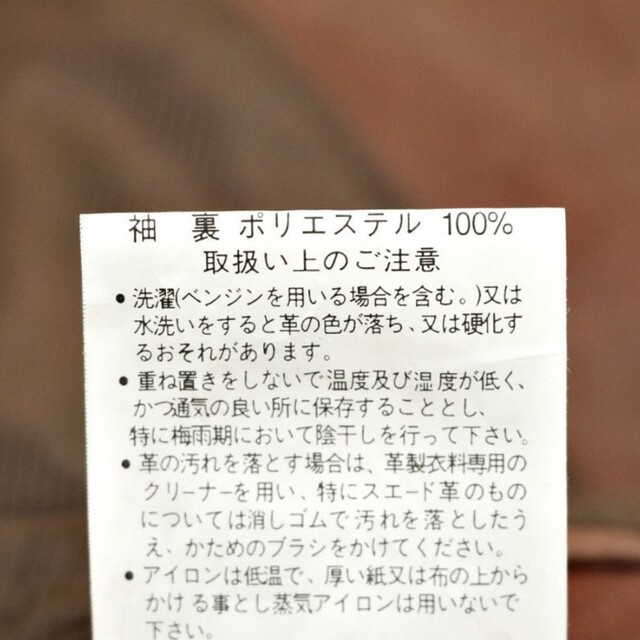 袖　裏 ポリエステル 100%
取扱い上のご注意
●洗濯(ベンジンを用いる場合を含む。)又は
水洗いをすると革の色が落ち、又は硬化す
るおそれがあります。
●重ね置きをしないで温度及び湿度が低く、
かつ通気の良い所に保存することとし、
特に梅雨期において陰干しを行って下さい。
●革の汚れを落とす場合は、革製衣料専用の
クリーナーを用い、特にスエード革のもの
については消しゴムで汚れを落としたう
え、かためのブラシをかけてください。
●アイロンは低温で、厚い紙又は布の上から
かける事とし蒸気アイロンは用いないで
下さい。